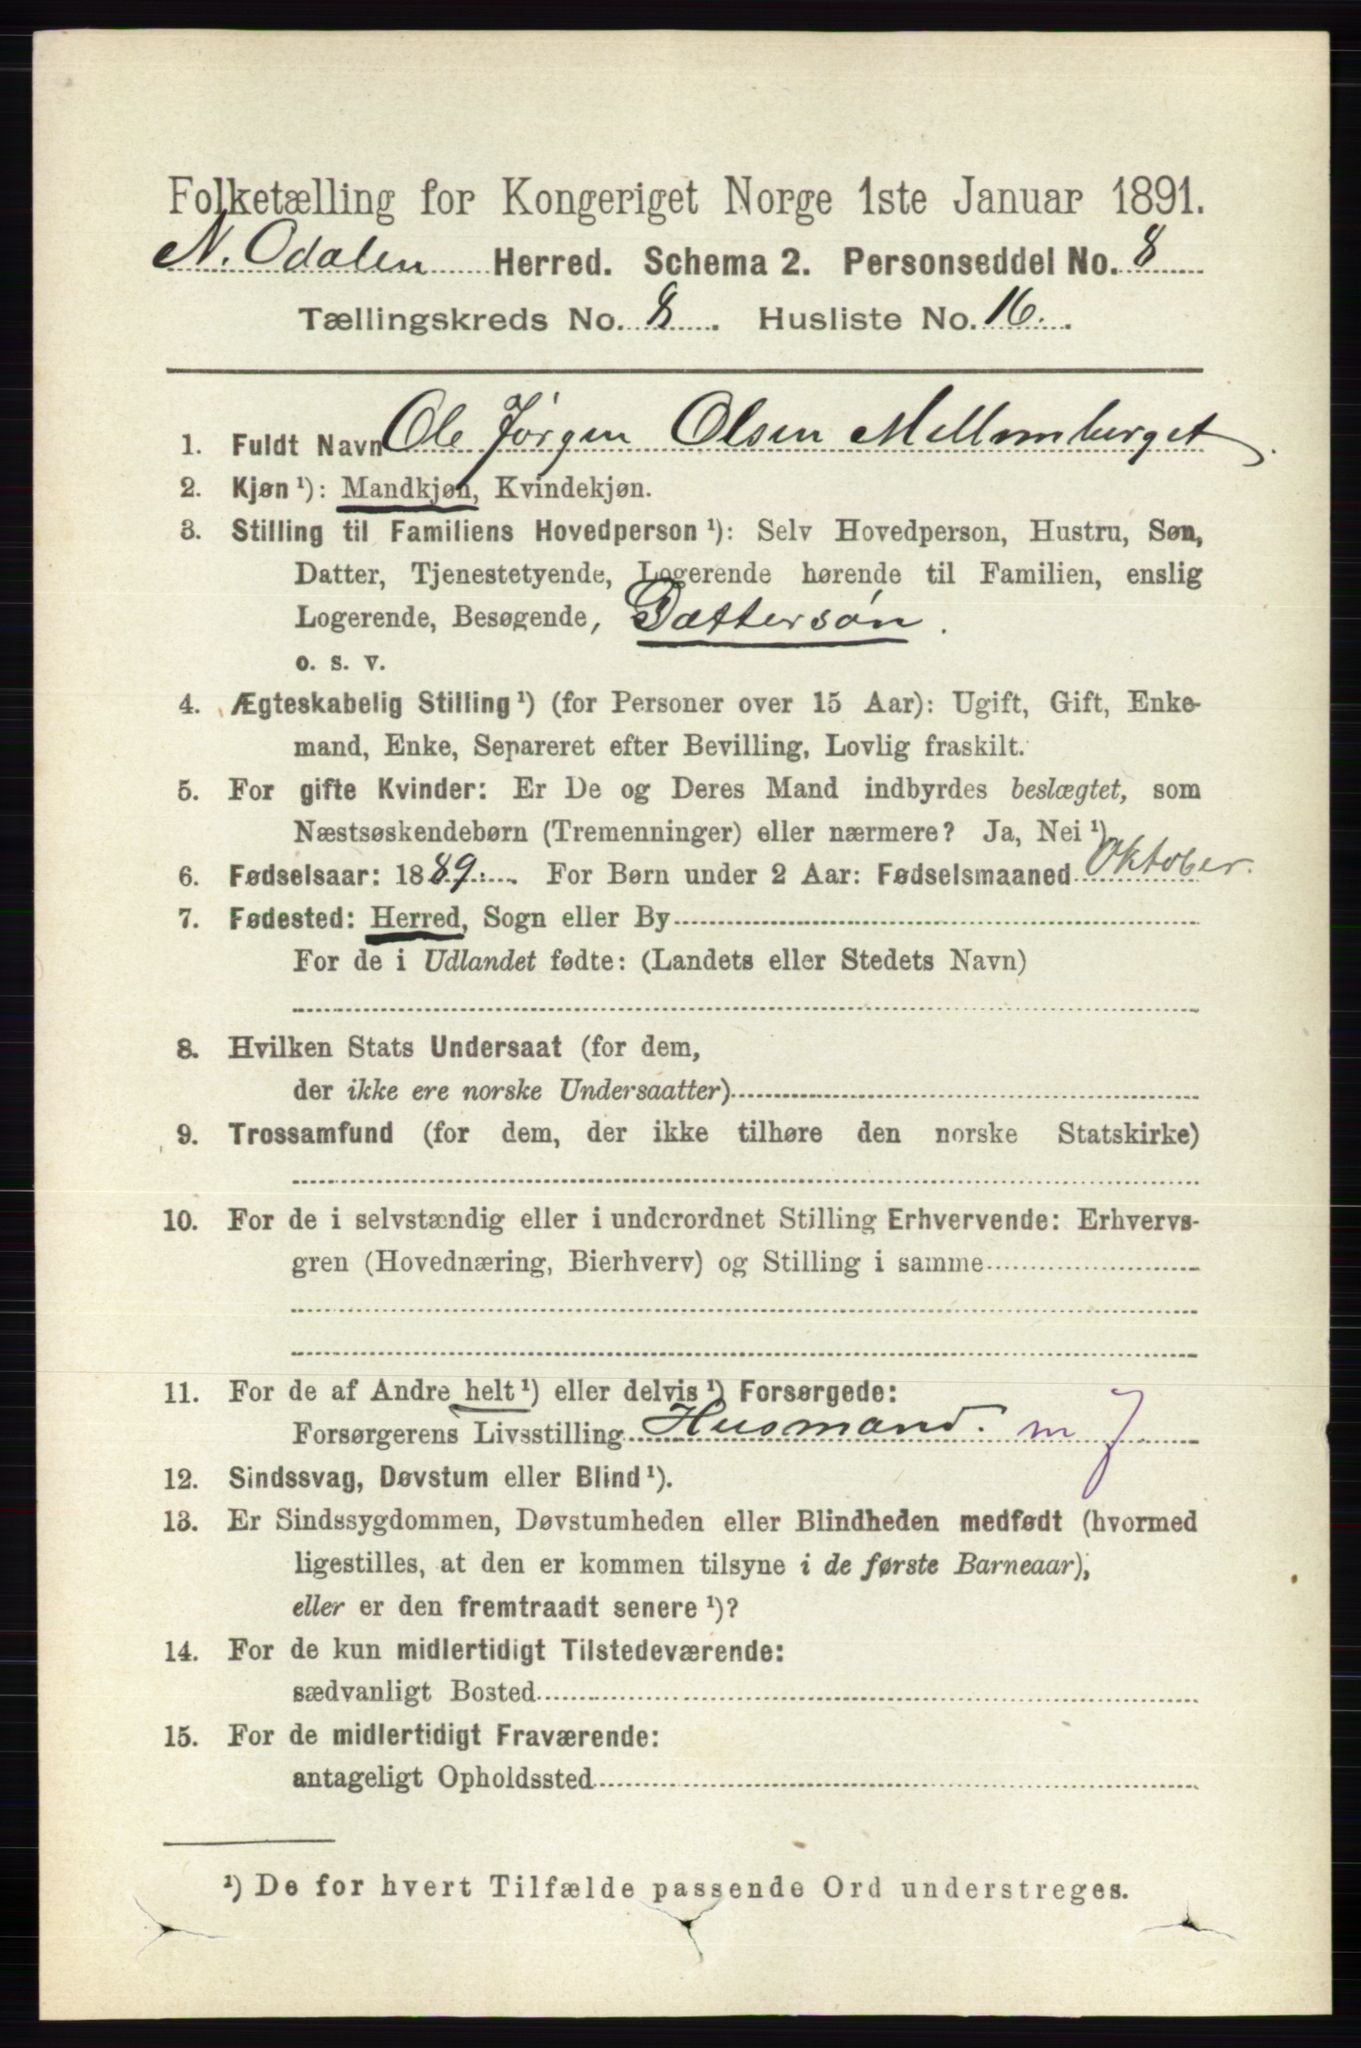 Folketælling for Kongeriget Norge 1ste Januar 1891.
N. Odalen Herred. Schema 2. Personseddel No. 8
Tællingskreds No. 8. Husliste No. 16.
1. Fuldt Navn Ole Jørgen Olsen Mellumberget
2. Kjøn ¹): Mandkjøn, Kvindekjøn.
3. Stilling til Familiens Hovedperson ¹): Selv Hovedperson, Hustru, Søn,
Datter, Tjenestetyende, Logerende hørende til Familien, enslig
Logerende, Besøgende, Dattersøn.
o. s. v.
4. Ægteskabelig Stilling ¹) (for Personer over 15 Aar): Ugift, Gift, Enke-
mand, Enke, Separeret efter Bevilling, Lovlig fraskilt.
5. For gifte Kvinder: Er De og Deres Mand indbyrdes beslægtet, som
Næstsøskendebørn (Tremenninger) eller nærmere? Ja, Nei ¹).
6. Fødselsaar: 1889. For Børn under 2 Aar: Fødselsmaaned Oktober.
7. Fødested: Herred, Sogn eller By
For de i Udlandet fødte: (Landets eller Stedets Navn)
8. Hvilken Stats Undersaat (for dem,
der ikke ere norske Undersaatter)
9. Trossamfund (for dem, der ikke tilhøre den norske Statskirke)
10. For de i selvstændig eller i underordnet Stilling Erhvervende: Erhvervs-
gren (Hovednæring, Bierhverv) og Stilling i samme
11. For de af Andre helt ¹) eller delvis ¹) Forsørgede:
Forsørgerens Livsstilling Husmand. m J
12. Sindssvag, Døvstum eller Blind ¹).
13. Er Sindssygdommen, Døvstumheden eller Blindheden medfødt (hvormed
ligestilles, at den er kommen tilsyne i de første Barneaar),
eller er den fremtraadt senere ¹)?
14. For de kun midlertidigt Tilstedeværende:
sædvanligt Bosted
15. For de midlertidigt Fraværende:
antageligt Opholdssted
¹) De for hvert Tilfælde passende Ord understreges.